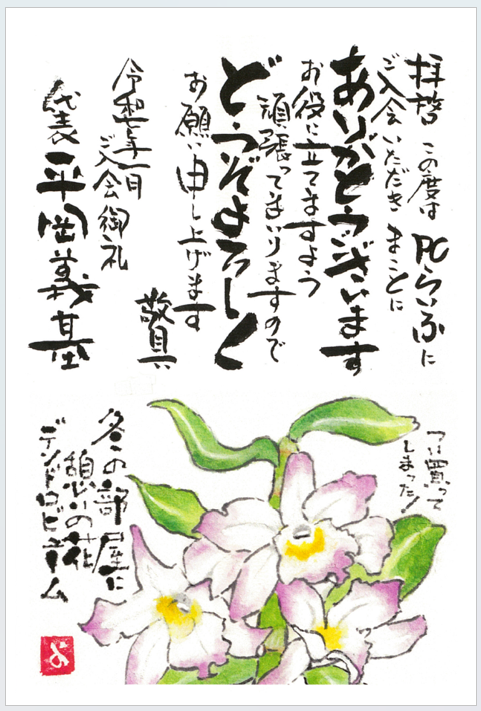 拝啓 この度は PCらいふに
ご入会いただき まことに
ありがとうございます
お役に立てますよう
頑張ってまいりますので
どうぞよろしく
お願い申し上げます
敬具
令和七年一月
ご入会御礼
代表 平岡義基
つい買って
しまった!
冬の部屋に
憩いの花
デンドロビューム